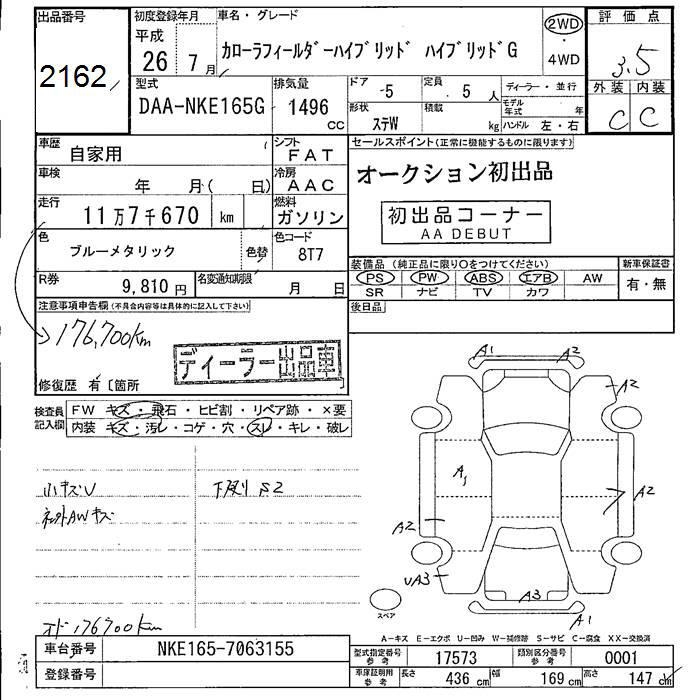 出品番号 初度登録年月 車名・グレード 評価点
2162
平成
26 年 7 月
カローラフィールダーハイブリッド ハイブリッドG
2WD
・
4WD
3.5
型式 排気量 ドア 定員 ディーラー・並行 外装 内装
DAA-NKE165G 1496 CC -5 5 人
モデル年式 年
形状 積載
ステW kg ハンドル 左・右
C C
車歴 自家用 シフト FAT
セールスポイント(正常に機能するものに限ります)
車検 年 月( 日) 冷房 AAC
オークション初出品
走行 11万7千670 km 燃料 ガソリン
初出品コーナー
AA DEBUT
色 ブルーメタリック 色替 色コード 8T7
装備品(純正品に限り○をつけてください) 新車保証書
R券 9,810 円 名変通知期限 月 日
PS PW ABS エアB AW 有・無
SR ナビ TV カワ
注意事項申告欄(不具合内容等は具体的に記入して下さい) 後日品
176,700km
ディーラー出品車
修復歴 有〔箇所
検査員記入欄
FW キズ・飛石・ヒビ割・リペア跡・×要
内装 キズ・汚レ・コゲ・穴・スレ・キレ・破レ
A1 A2
A2
A1
A2
A2
UA3
A3
A1
小キズU
下廻り S2
AWキズ
スペア
オド176700km
A-キズ E-エクボ U-凹み W-補修跡 S-サビ C-腐食 XX-交換済
車台番号 NKE165-7063155
型式指定番号 参考 17573 類別区分番号 参考 0001
登録番号
車庫証明用 参考 長さ 436 cm 幅 169 cm 高さ 147 cm